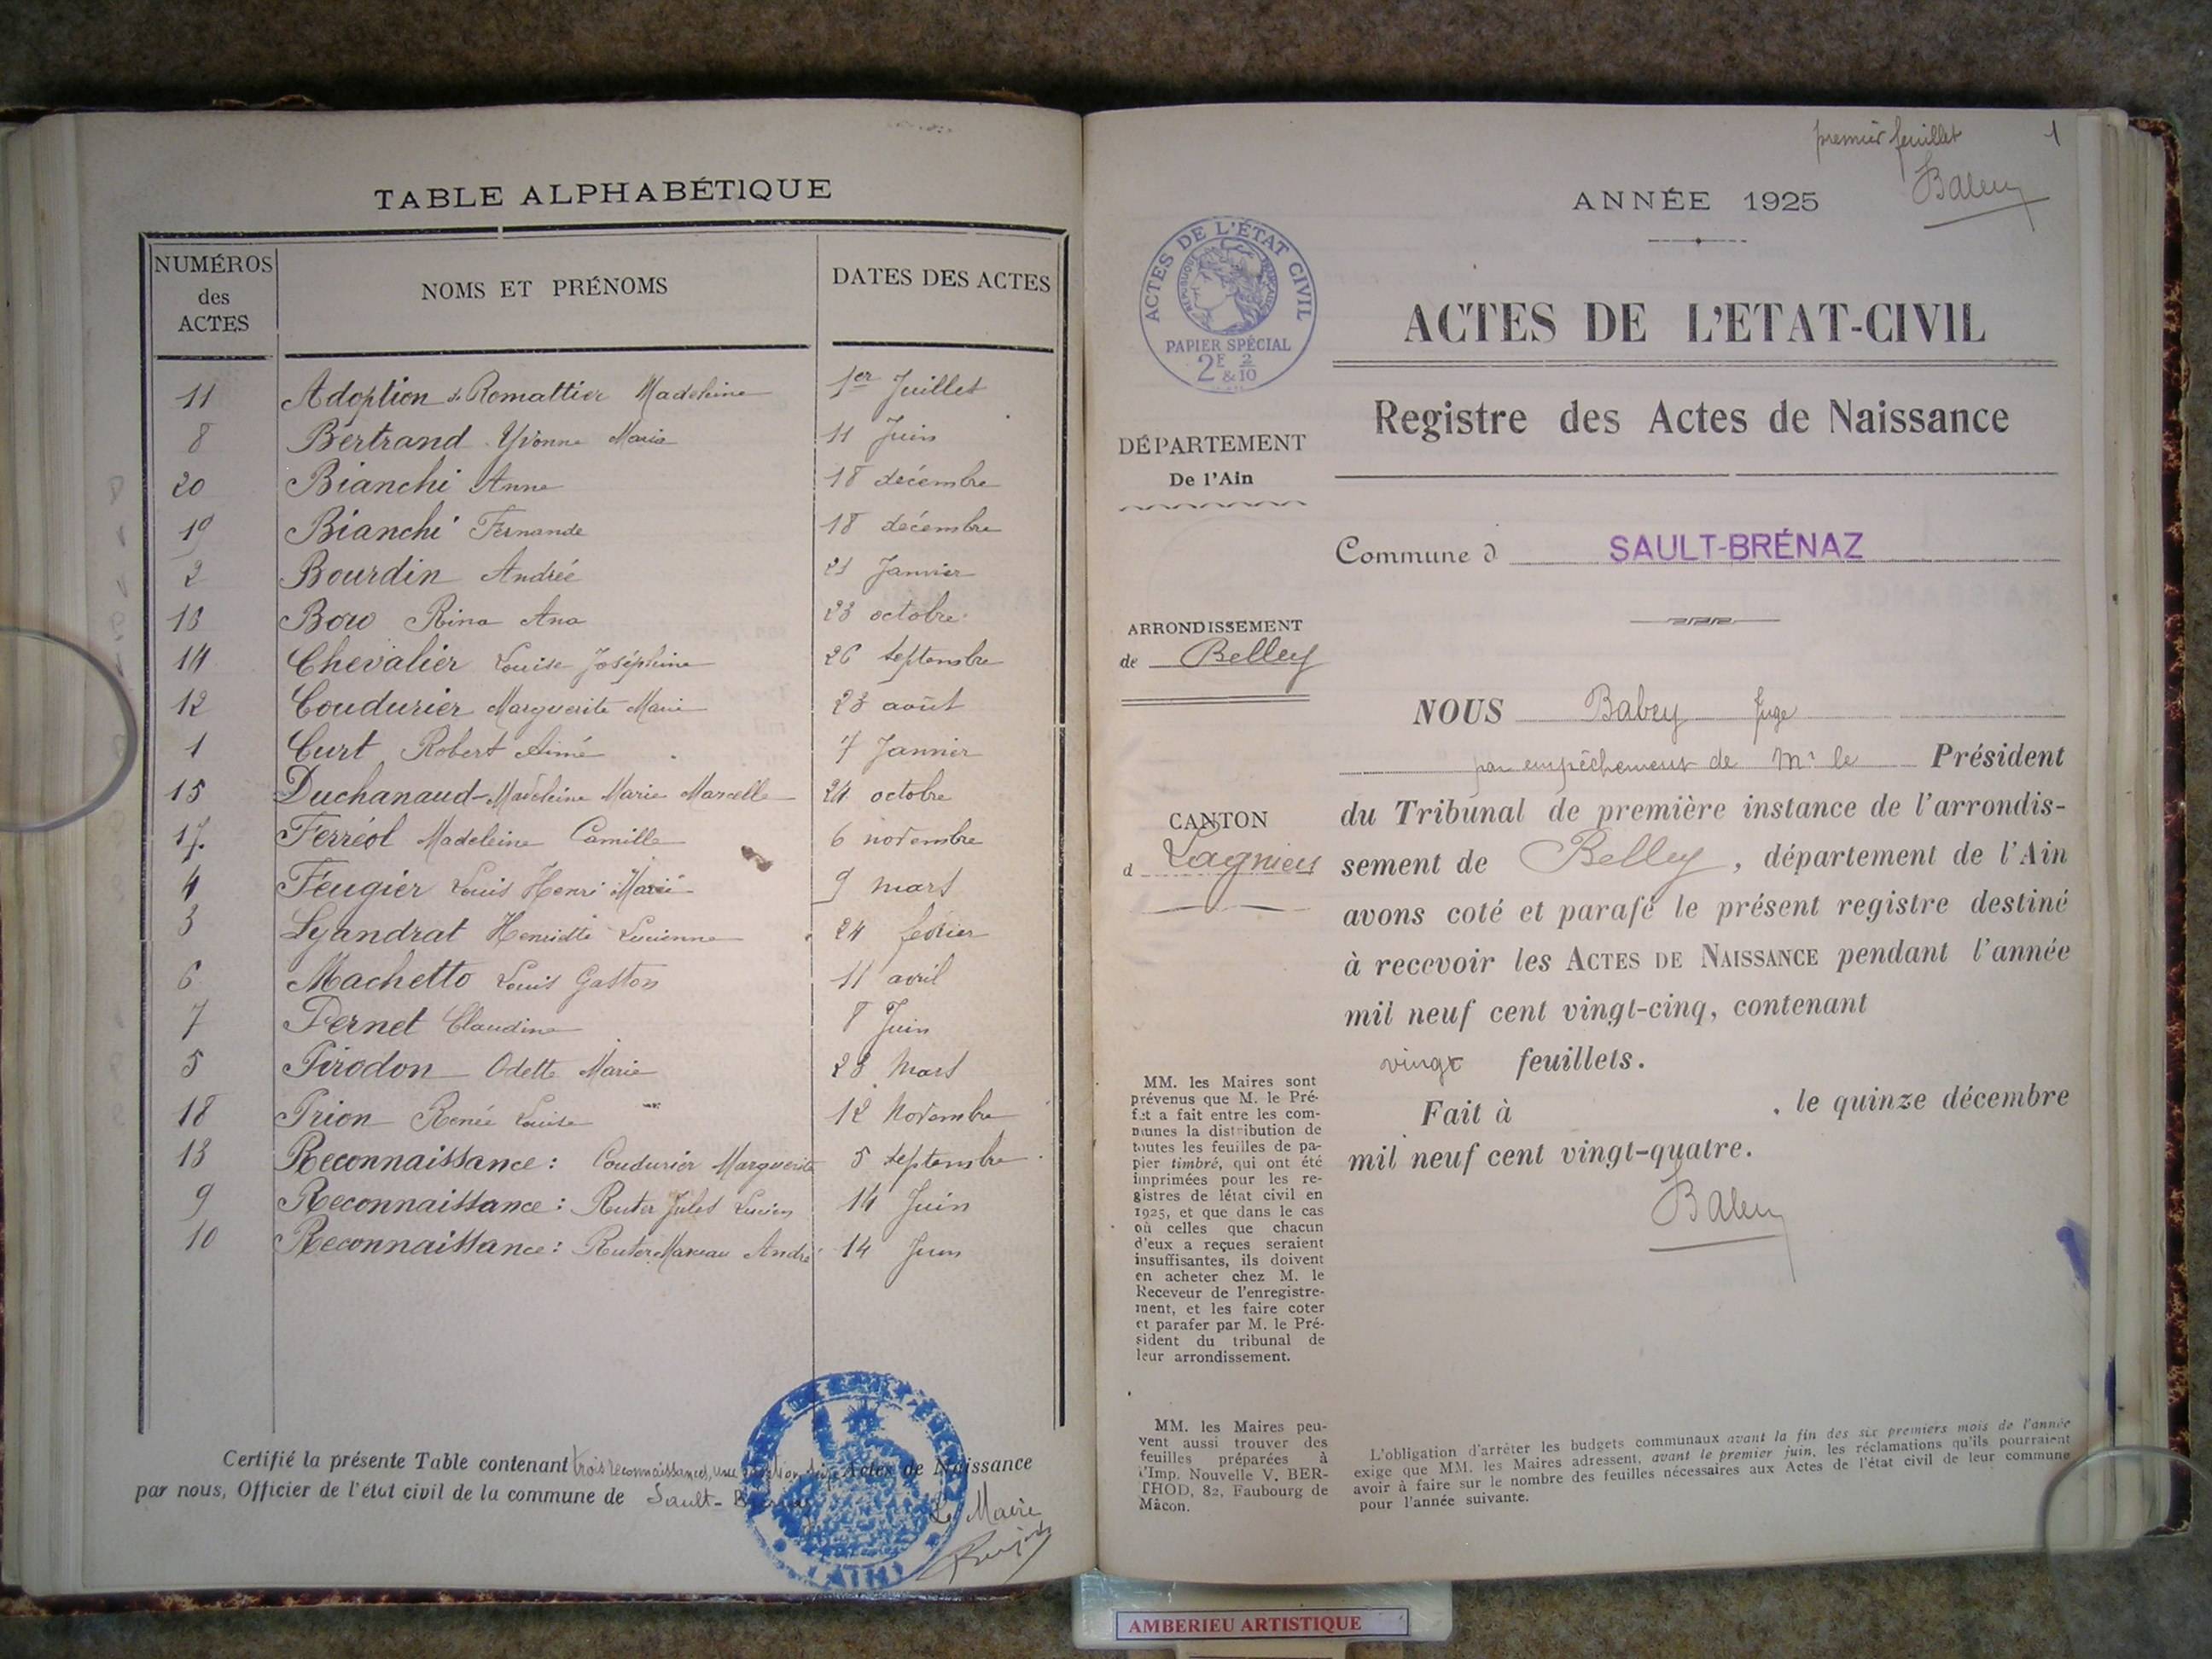 TABLE ALPHABÉTIQUE
NUMÉROS des ACTES | NOMS ET PRÉNOMS | DATES DES ACTES
11 Adoption de Romattier Madeleine 1er Juillet
8 Bertrand Yvonne Maria 11 Juin
20 Bianchi Anne 18 decémbre
19 Bianchi Fernande 18 decémbre
2 Bourdin Andrée 21 Janvier
16 Rina Ana 23 octobre
14 Chevalier Louise Joséphine 26 septembre
12 Coudurier Marguerite Marie 23 août
1 Curt Robert Aimé 7 Janvier
15 Duchanaud Madeleine Marie Marcelle 24 octobre
17. Ferréol Madeleine Camille 6 novembre
4 Feugier Louis Henri Marie 9 mars
3 Lyandrat Henriette Lucienne 24 fevrier
6 Machetto Louis Gaston 11 avril
7 Pernet Claudine 8 Juin
5 Pirodon Odette Marie 23 Mars
18 Prion Renée Louise 12 Novembre
13 Reconnaissance: Coudurier Marguerite 5 septembre
9 Reconnaissance: Ruter Jules Lucien 14 Juin
10 Reconnaissance: Ruter Marceau André 14 Juin
Certifié la présente Table contenant trois reconnaissances, une Actes de Naissance
par nous, Officier de l'état civil de la commune de Sault-
Le Maire
premier feuillet 1
Babey
ANNÉE 1925
ACTES DE L'ÉTAT CIVIL
RÉPUBLIQUE FRANÇAISE
PAPIER SPÉCIAL
2F & 2/10
ACTES DE L'ETAT-CIVIL
Registre des Actes de Naissance
DÉPARTEMENT
De l'Ain
Commune d SAULT-BRÉNAZ
ARRONDISSEMENT
de Belley
CANTON
d Lagnieu
NOUS Babey Juge
par empêchement de Mr le Président
du Tribunal de première instance de l'arrondis-
sement de Belley, département de l'Ain
avons coté et parafé le présent registre destiné
à recevoir les ACTES DE NAISSANCE pendant l'année
mil neuf cent vingt-cinq, contenant
vingt feuillets.
Fait à , le quinze décembre
mil neuf cent vingt-quatre.
Babey
MM. les Maires sont
prévenus que M. le Pré-
fet a fait entre les com-
munes la distribution de
toutes les feuilles de pa-
pier timbré, qui ont été
imprimées pour les re-
gistres de létat civil en
1925, et que dans le cas
où celles que chacun
d'eux a reçues seraient
insuffisantes, ils doivent
en acheter chez M. le
Receveur de l'enregistre-
ment, et les faire coter
et parafer par M. le Pré-
sident du tribunal de
leur arrondissement.
MM. les Maires peu-
vent aussi trouver des
feuilles préparées à
l'Imp. Nouvelle V. BER-
THOD, 82, Faubourg de
Mâcon.
L'obligation d'arrêter les budgets communaux avant la fin des six premiers mois de l'année
exige que MM. les Maires adressent, avant le premier juin, les réclamations qu'ils pourraient
avoir à faire sur le nombre des feuilles nécessaires aux Actes de l'état civil de leur commune
pour l'année suivante.
AMBERIEU ARTISTIQUE